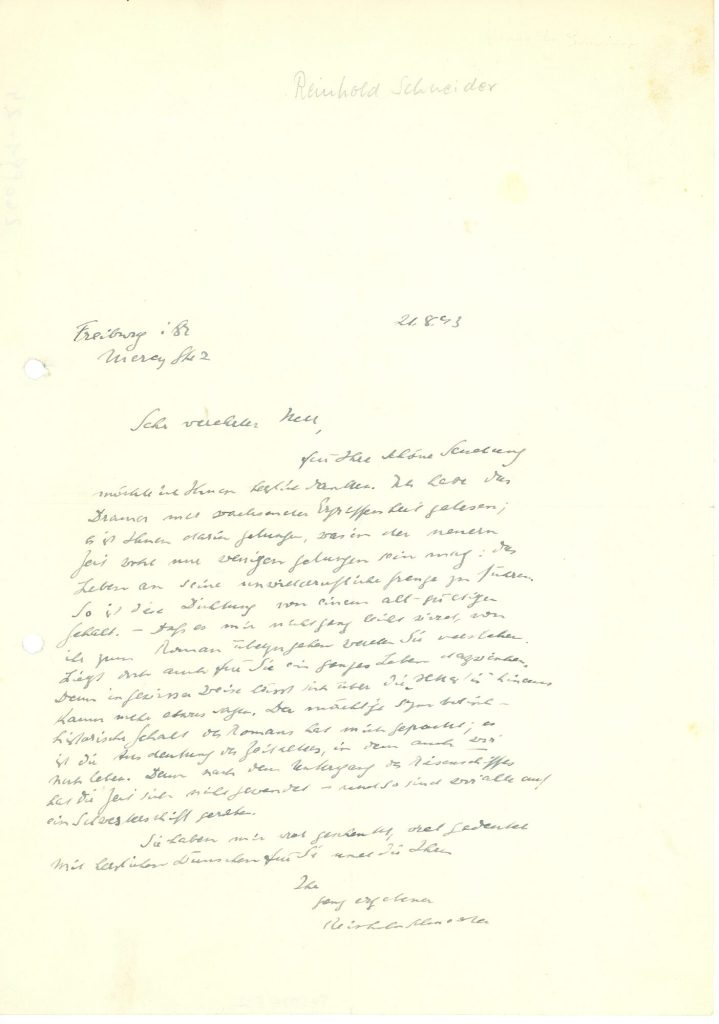 Reinhold Schneider
Freiburg i Br
Mercy Str 2
21.8.43
Sehr verehrter Herr,
für Ihre schöne Sendung
möchte ich Ihnen herzlich danken. Ich habe das
Drama mit wachsender Ergriffenheit gelesen;
es ist Ihnen darin gelungen, was in der neuern
Zeit wohl nur wenigen gelungen sein mag: das
Leben an seine unwiderrufliche Grenze zu führen
So ist diese Dichtung von einem alt-gültigen
Gehalt. – Daß es mir nicht ganz leicht wird, von
ihr zum Roman überzugehen werden Sie verstehen.
Liegt doch auch für Sie ein ganzes Leben dazwischen.
Denn in gewisser Weise lässt sich über die hinaus
kaum mehr etwas sagen. Der mächtige symbolisch-
historische Gehalt des Romans hat mich gepackt; es
ist die Ausdeutung des Zeitalters, in dem auch wir
noch leben. Denn nach dem Untergang des Riesenschiffes
hat die Zeit sich nicht gewendet – und so sind wir alle auf
ein geraten.
Sie haben mir viel geschenkt, viel gedeutet
Mit herzlichen Wünschen für Sie und die Ihren
Ihr
ganz ergebener
Reinhold Schneider